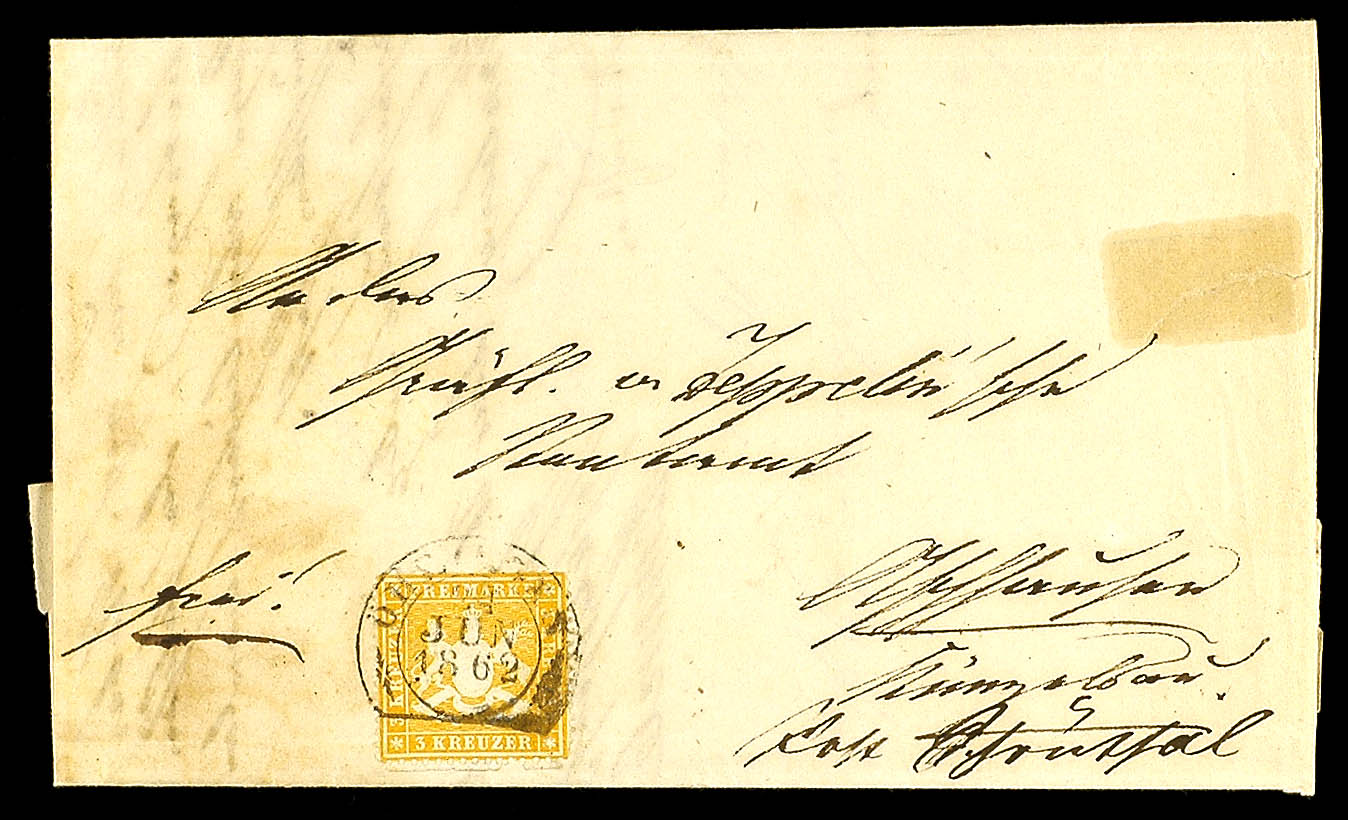 An das
Gräfl. v. Zeppelin'sche
Rentamt
Aschhausen
Künzelsau.
Post Schönthal
frei.
FREIMARKE
JUN
1862
3 KREUZER